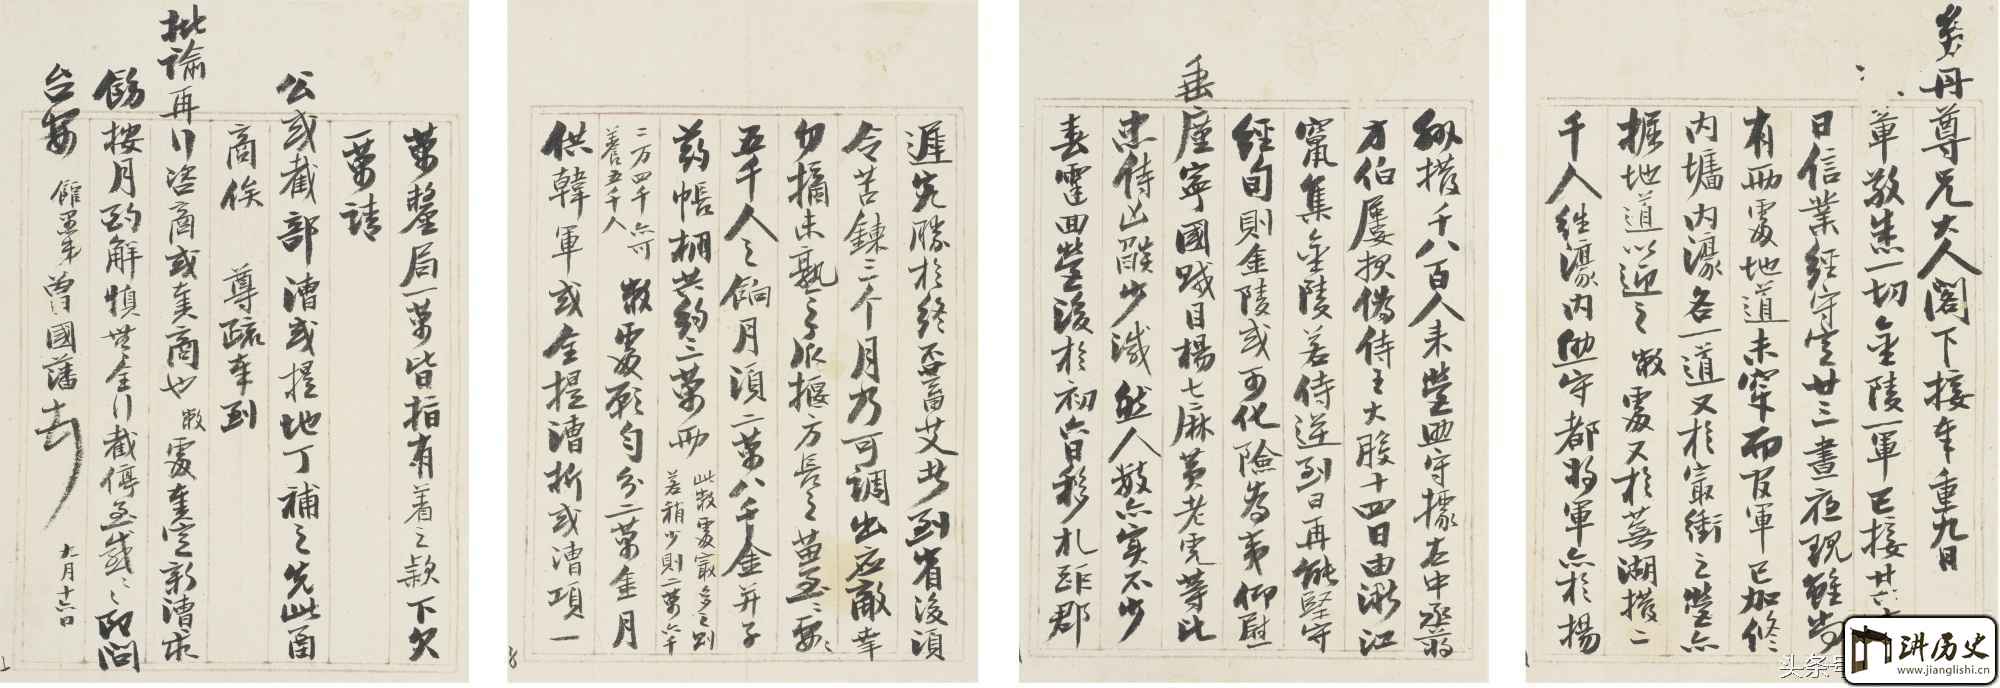 丹尊兄大人閣下接奉重九日
敬悉一切金陵一軍已接廿六
日信業經守定廿三晝夜現雖尚
有兩處地道未穿而官軍已加修
内墉内濠各一道又於最衝之營亦
掘地道以迎之敝處又於蕪湖撥二
千人往濠内助守都將軍亦於揚
撥千八百人来營助守據左中丞蔣
方伯屢探偽侍王大股十四日由浙江
竄集金陵若侍逆到日再能堅守
經旬則金陵或可化險為夷仰慰
垂廑寧國賊目楊七麻黄老虎等比
忠侍凶燄少減然人数亦實不少
春霆回營後於初六日移扎距郡
遲究勝於終不畜艾此到省後須
令苦鍊三个月乃可調出应敵幸
勿摘未熟之子爪揠方長之苗至要
五千人之餉月須二萬八千金并子
葯帳棚共約三萬兩
此敝處最多之則
若稍少則二萬六千
二万四千亦可
養五千人
敝處願勻分二萬金月
供韓軍或全提漕折或漕項一
萬釐局一萬皆指有着之款下欠
一萬請
公或截部漕或提地丁補之先此函
商俟 尊疏奉到
批諭再行咨商或奏商也敝處奏定新漕求
飭按月到解慎無全行截停至感至感即問
台安 館愚弟曾國藩頓首 九月十六日
头条号
讲历史
www.jianglishi.cn